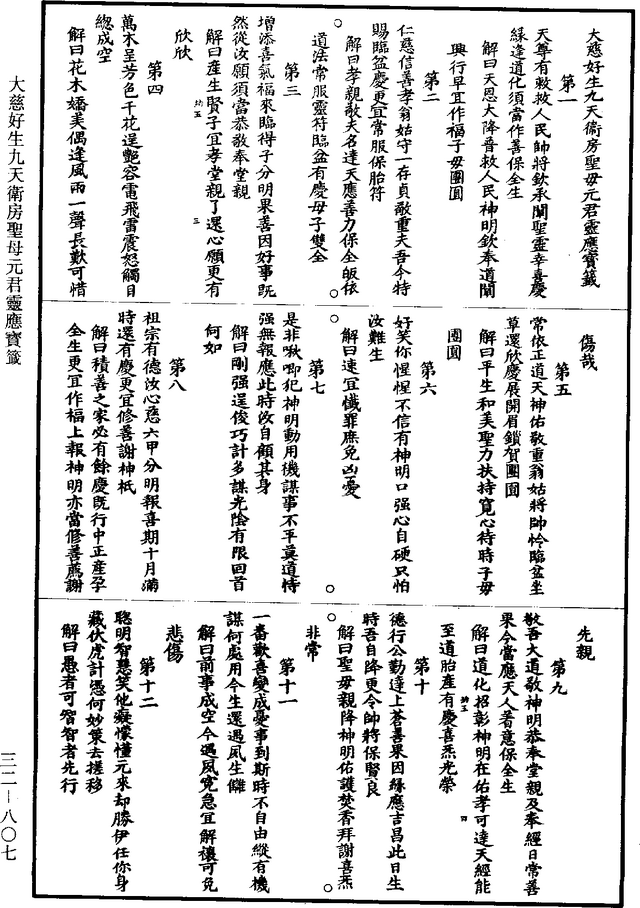 大慈好生九天衛房聖母元君靈應寶籤
第一
天尊有敕救人民帥將欽承闡聖靈幸喜慶
緣逢道化須當作善保全生
解曰天恩大降普救人民神明欽奉道闡
興行早宜作福子母團圓
第二
仁慈信善孝翁姑守一存貞敬重夫吾今特
賜臨盆慶更宜常服保胎符
解曰孝親敬夫名達天應善力保全皈依
道法常服靈符臨盆有慶母子雙全
第三
增添喜氣福來臨得子分明果善因好事既
然從汝願須當恭敬奉堂親
解曰產生賢子宜孝堂親了還心願更有
欣欣
第四
萬木呈芳色千花逞艷容電飛雷震怒觸目
總成空
解曰花木嬌美偶逢風雨一聲長歎可惜
傷哉
第五
常依正道天神佑敬重翁姑將帥怜臨盆坐
草還欣慶展開眉鎖賀團圓
解曰平生和美聖力扶持寬心待時子母
團圓
第六
好笑你惺惺不信有神明口强心自硬只怕
汝難生
解曰速宜懺罪庶免凶憂
第七
是非啾唧犯神明動用機謀事不平莫道恃
强無報應此時汝自顧其身
解曰剛强逞俊巧計多謀光陰有限回首
何如
第八
祖宗有德汝心慈六甲分明報喜期十月滿
時還有慶更宜修善謝神祇
解曰積善之家必有餘慶既行中正產孕
全生更宜作福上報神明亦當修善薦謝
先親
第九
敬吾大道敬神明恭奉堂親及奉經日常善
果今當應天人著意保全生
解曰道化招彰神明在佑孝可達天經能
至道胎產有慶喜炁光榮
第十
德行公勤達上蒼善果因緣應吉昌此日生
時吾自降更令帥將保賢良
解曰聖母親降神明佑護焚香拜謝喜炁
非常
第十一
一番歡喜變成憂事到斯時不自由縱有機
謀何處用今生還遇夙生讎
解曰前事成空今遇夙寃急宜解禳可免
悲傷
第十二
聰明智慧笑他癡懞懂元來却勝伊任你身
藏伏虎計憑何妙策去搓移
解曰愚者可智智者先行
大慈好生九天衛房聖母元君靈應寶籤
三二—八〇七